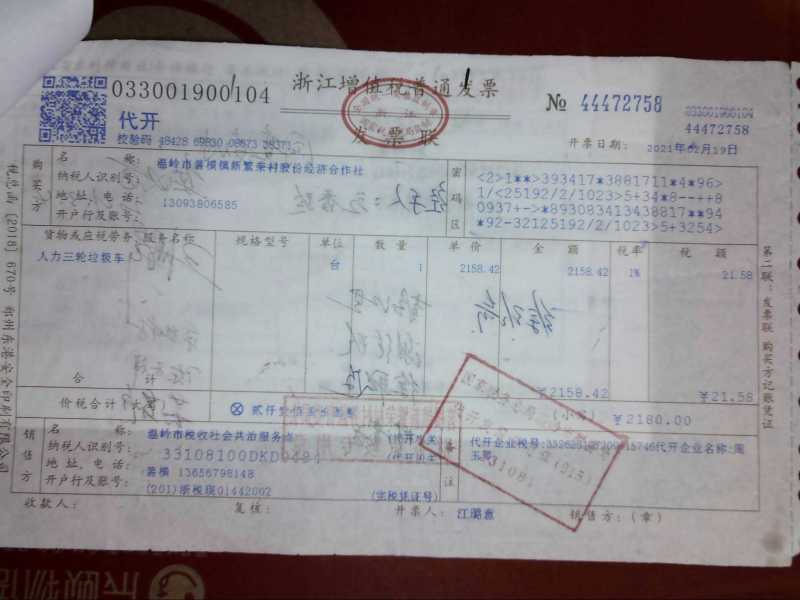 033001900104
浙江增值税普通发票
№ 44472758
033001900104
44472758
代开
发票联
开票日期: 2021年02月19日
校验码 48428 69830 08673 38371
购买方
名 称: 温岭市箬横镇新繁荣村股份经济合作社
纳税人识别号:
地址、电话: 13093806585
开户行及账号:
密码区
<2>1**>393417*3881711*4*96>
1/<25192/2/1023>5+34*8----++8
0937+->+*8930834134388​17**94
*92-32125192/2/1023>5+3254>
货物或应税劳务、服务名称 规格型号 单位 数量 单价 金额 税率 税额
人力三轮垃圾车 台 1 2158.42 2158.42 1% 21.58
合 计 ¥2158.42 ¥21.58
价税合计(大写) ⊗ 贰仟壹佰捌拾圆整 (小写) ¥2180.00
销售方
名 称: 温岭市税收社会共治服务点 (代开机关)
纳税人识别号: 33108100DKD0494 (代开机关)
地址、电话: 箬横 13656798148
开户行及账号: (201)浙税现01442002 (完税凭证号)
备注
代开企业名称:周
收款人: 复核: 开票人: 江璐意 销售方:(章)
第二联:发票联 购买方记账凭证
税总函〔2018〕670号 郑州东港安全印刷有限公司